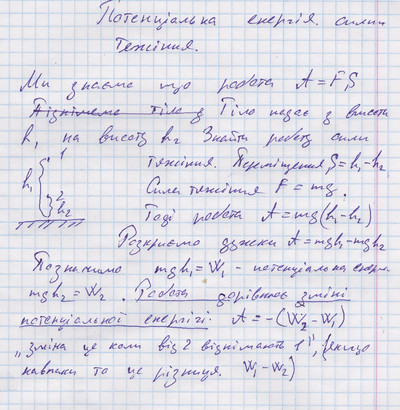 Потенціальна енергія. сили
тяжіння.
Ми знаємо що робота A = F S
Піднімемо тіло з Тіло падає з висоти
h₁ на висоту h₂ Знайти роботу сили
тяжіння. Переміщення S = h₁ - h₂
1
h₁
2
h₂
Сила тяжіння F = mg.
Тоді робота A = mg(h₁ - h₂)
Розкриємо дужки A = mgh₁ - mgh₂
Позначимо mgh₁ = W₁ - потенціальна енергія
mgh₂ = W₂. Робота дорівнює зміні
потенціальної енергії A = -(W₂ - W₁)
„зміна це коли від 2 віднімають 1", (якщо
навпаки то це різниця. W₁ - W₂)